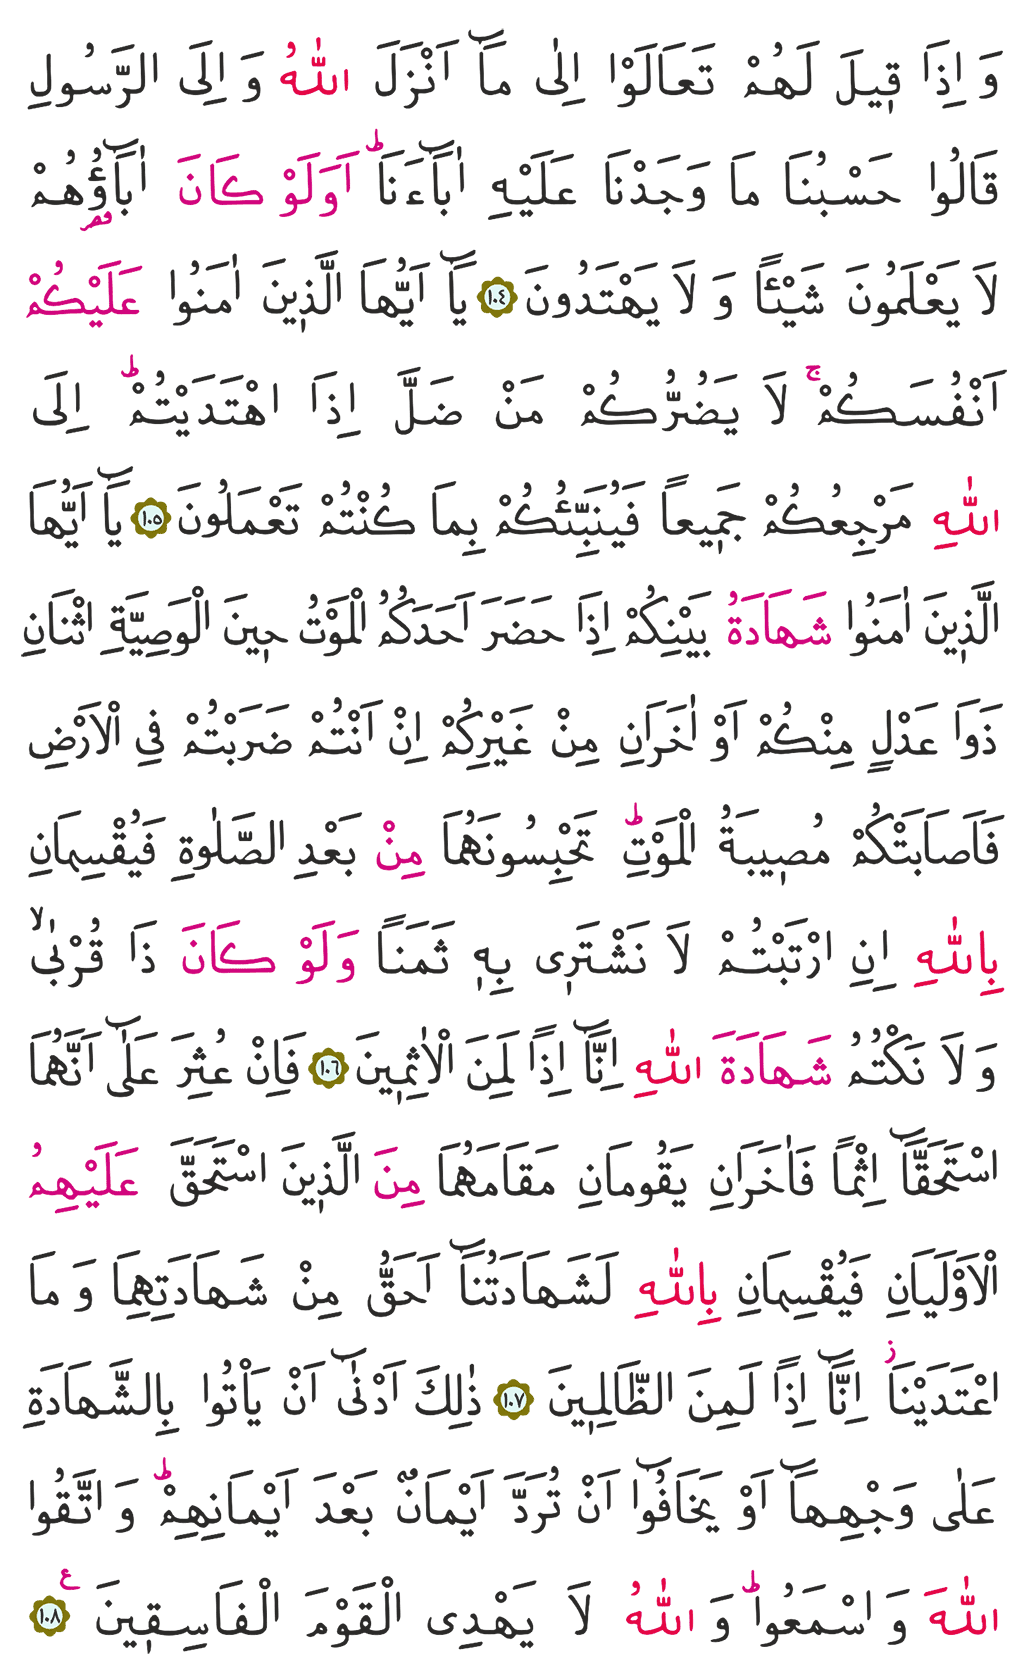 وَ اِذَا قٖيلَ لَهُمْ تَعَالَوْا اِلٰى مَٓا اَنْزَلَ اللّٰهُ وَ اِلَى الرَّسُولِ
قَالُوا حَسْبُنَا مَا وَجَدْنَا عَلَيْهِ اٰبَٓاءَنَاؕ اَوَلَوْ كَانَ اٰبَٓاؤُ۬هُمْ
لَا يَعْلَمُونَ شَيْـًٔا وَ لَا يَهْتَدُونَ ١٠٤ يَٓا اَيُّهَا الَّذٖينَ اٰمَنُوا عَلَيْكُمْ
اَنْفُسَكُمْۚ لَا يَضُرُّكُمْ مَنْ ضَلَّ اِذَا اهْتَدَيْتُمْؕ اِلَى
اللّٰهِ مَرْجِعُكُمْ جَمٖيعاً فَيُنَبِّئُكُمْ بِمَا كُنْتُمْ تَعْمَلُونَ ١٠٥ يَٓا اَيُّهَا
الَّذٖينَ اٰمَنُوا شَهَادَةُ بَيْنِكُمْ اِذَا حَضَرَ اَحَدَكُمُ الْمَوْتُ حٖينَ الْوَصِيَّةِ اثْنَانِ
ذَوَا عَدْلٍ مِنْكُمْ اَوْ اٰخَرَانِ مِنْ غَيْرِكُمْ اِنْ اَنْتُمْ ضَرَبْتُمْ فِي الْاَرْضِ
فَاَصَابَتْكُمْ مُصٖيبَةُ الْمَوْتِؕ تَحْبِسُونَهُمَا مِنْ بَعْدِ الصَّلٰوةِ فَيُقْسِمَانِ
بِاللّٰهِ اِنِ ارْتَبْتُمْ لَا نَشْتَرٖى بِهٖ ثَمَناً وَلَوْ كَانَ ذَا قُرْبٰىۙ
وَ لَا نَكْتُمُ شَهَادَةَ اللّٰهِ اِنَّٓا اِذاً لَمِنَ الْاٰثِمٖينَ ١٠٦ فَاِنْ عُثِرَ عَلٰٓى اَنَّهُمَا
اسْتَحَقَّٓا اِثْماً فَاٰخَرَانِ يَقُومَانِ مَقَامَهُمَا مِنَ الَّذٖينَ اسْتَحَقَّ عَلَيْهِمُ
الْاَوْلَيَانِ فَيُقْسِمَانِ بِاللّٰهِ لَشَهَادَتُنَٓا اَحَقُّ مِنْ شَهَادَتِهِمَا وَ مَا
اعْتَدَيْنَاؗ اِنَّٓا اِذاً لَمِنَ الظَّالِمٖينَ ١٠٧ ذٰلِكَ اَدْنٰٓى اَنْ يَاْتُوا بِالشَّهَادَةِ
عَلٰى وَجْهِهَٓا اَوْ يَخَافُٓوا اَنْ تُرَدَّ اَيْمَانٌ بَعْدَ اَيْمَانِهِمْؕ وَ اتَّقُوا
اللّٰهَ وَ اسْمَعُواؕ وَ اللّٰهُ لَا يَهْدِى الْقَوْمَ الْفَاسِقٖينَ ع ١٠٨